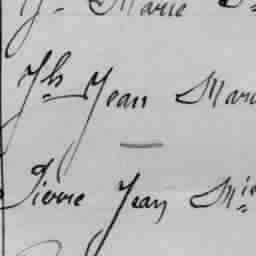 Marie
Jh Jean Mari
Pierre Jean Mie